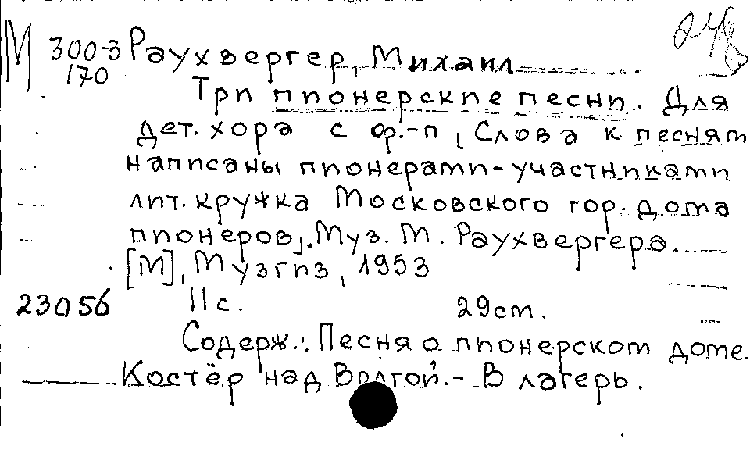 М 300-3 Раухвергер, Михаил
170
Три пионерские песни. Для
дет. хора с ф.-п, Слова к песням
написаны пионерами-участниками
лит. кружка Московского гор. дома
пионеров,. Муз. М. Раухвергера.
[М], Музгиз, 1953
23056 11 с. 29 см.
Содерж.: Песня о пионерском доме.
Костёр над Волгой. - В лагерь.